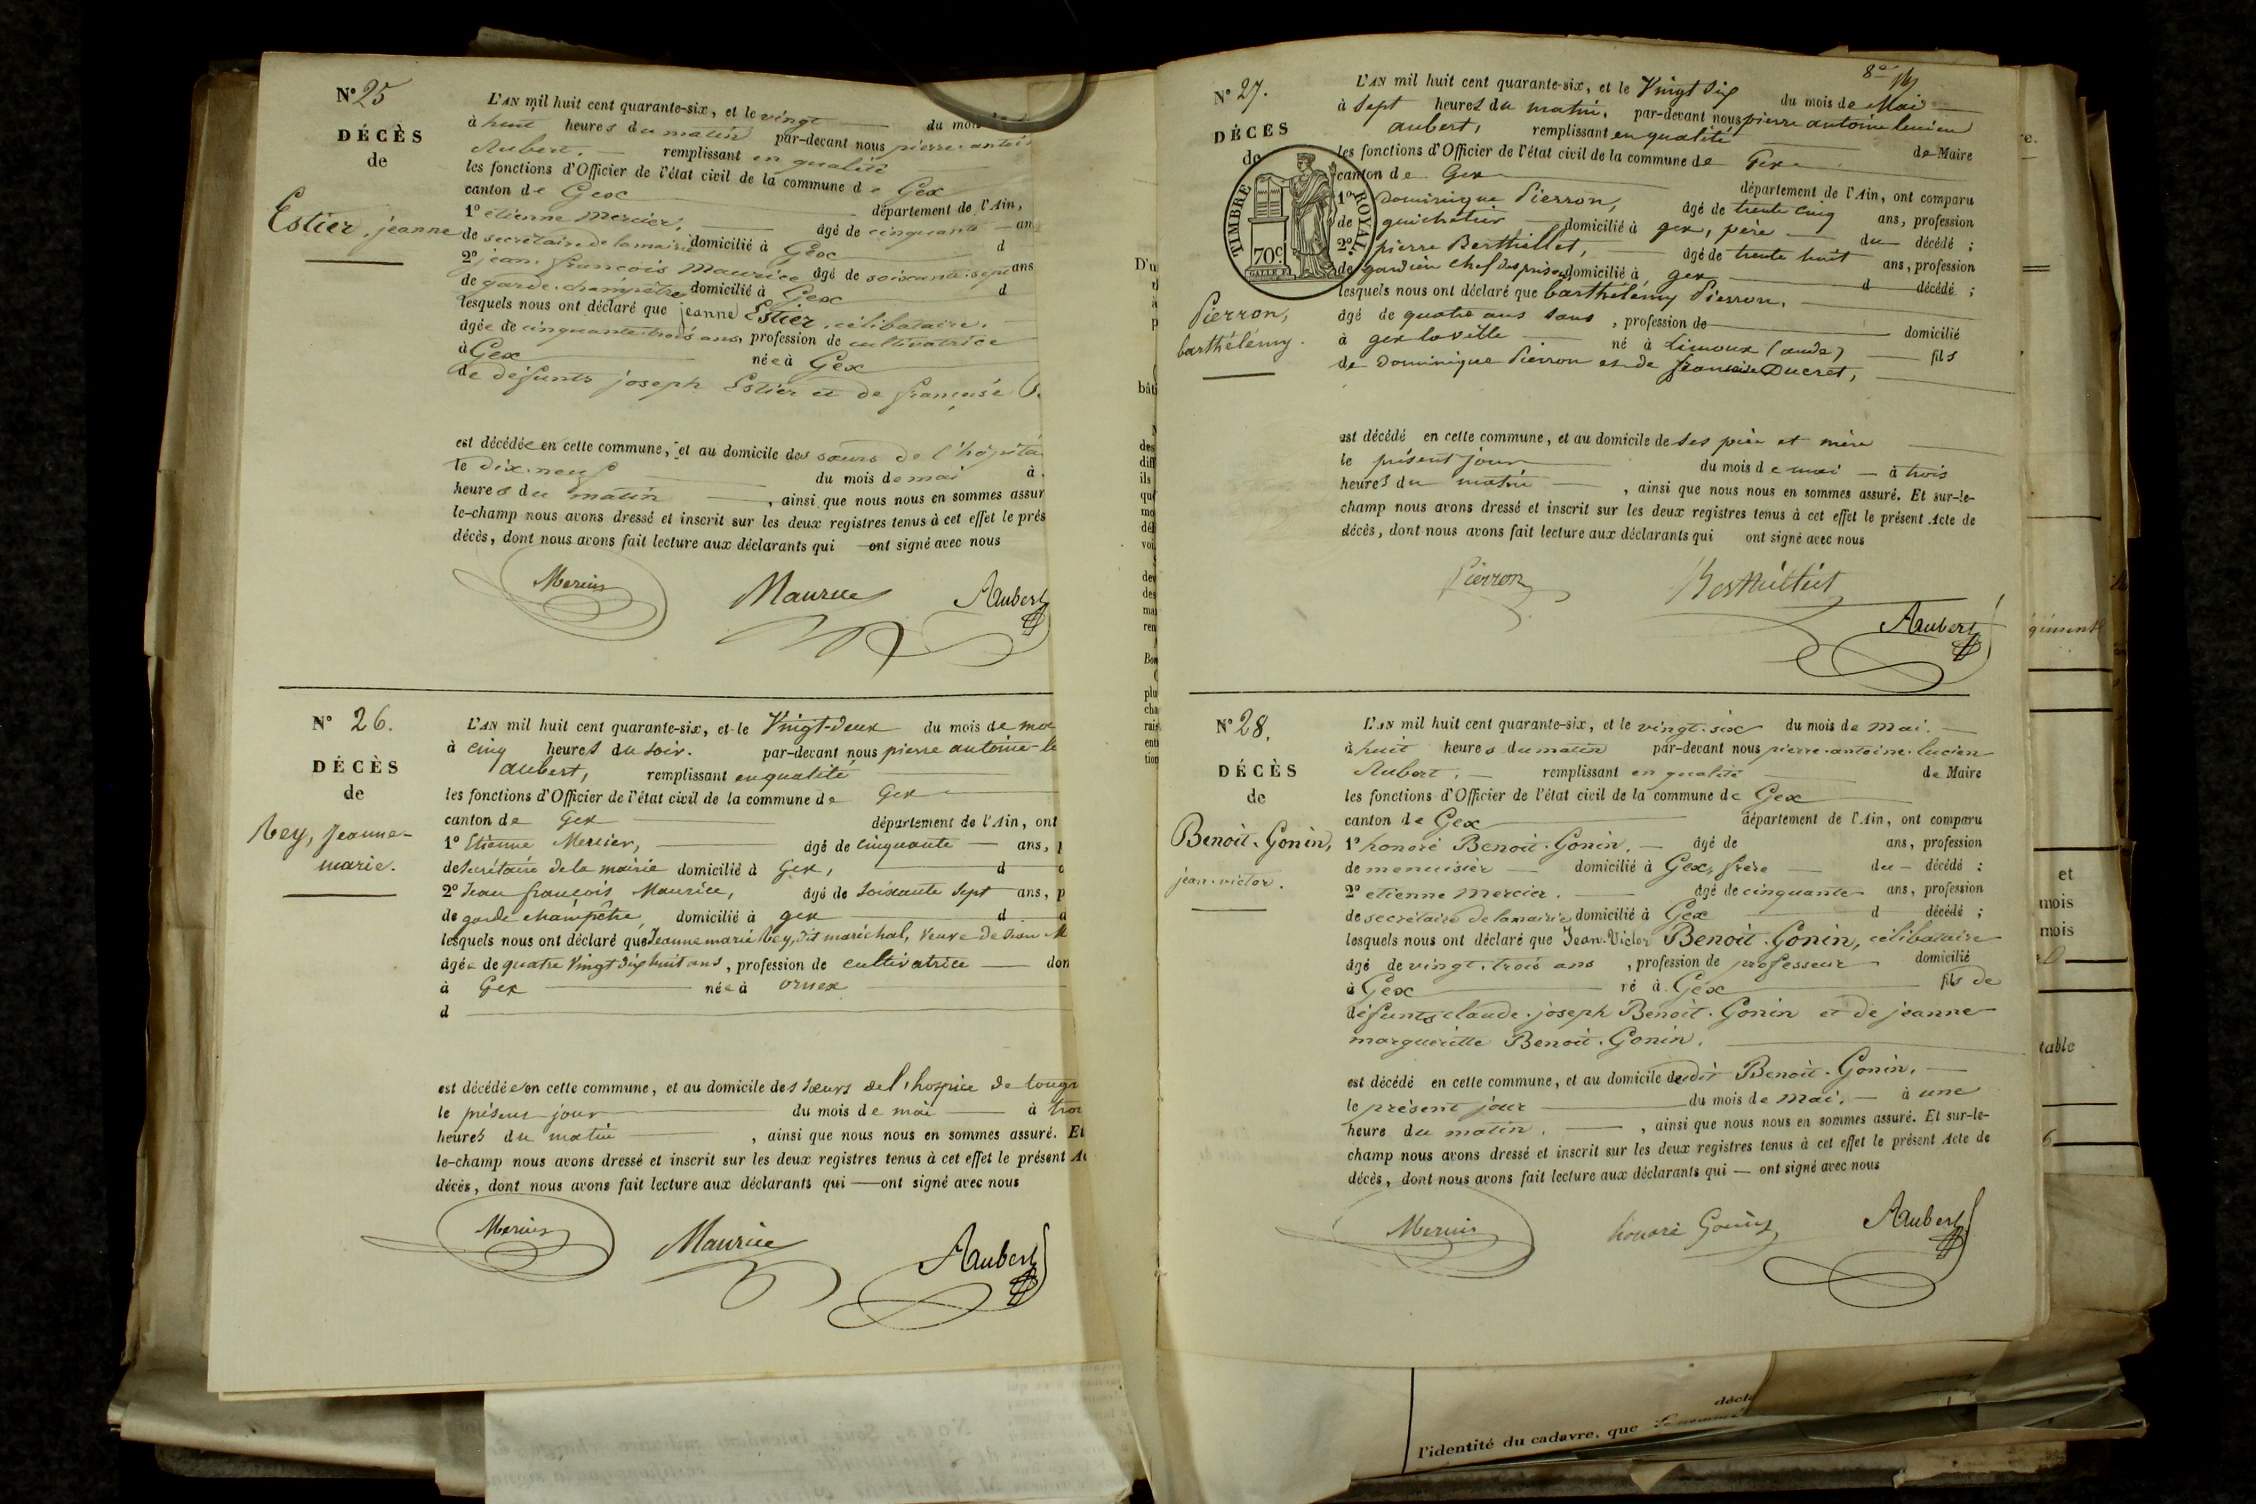 N° 25
DÉCÈS
de
Estier, jeanne
L'AN mil huit cent quarante-six, et le vingt du mois
à huit heures du matin par-devant nous pierre. antoi
Aubert. remplissant en qualité
les fonctions d'Officier de l'état civil de la commune de Gex
canton de Gex département de l'Ain,
1° étienne Mercier, âgé de cinquante ans
de secrétaire de la mairie domicilié à Gex d
2° jean. françois Maurice âgé de soixante. sept ans
de garde. champêtre domicilié à Gex d
lesquels nous ont déclaré que jeanne Estier, célibataire.
âgée de cinquante. trois ans, profession de cultivatrice
à Gex née à Gex
de défunts joseph Estier et de françoise
est décédée en cette commune, et au domicile des sœurs de l'hôpita
le dix. neuf du mois de mai à
heures du matin , ainsi que nous nous en sommes assur
le-champ nous avons dressé et inscrit sur les deux registres tenus à cet effet le prés
décès, dont nous avons fait lecture aux déclarants qui ont signé avec nous
Mercier Maurice Aubert
N° 26.
DÉCÈS
de
Rey, Jeanne-
marie.
L'AN mil huit cent quarante-six, et le Vingt-deux du mois de mai
à cinq heures du soir. par-devant nous pierre antoine-le
aubert, remplissant en qualité
les fonctions d'Officier de l'état civil de la commune de Gex
canton de Gex département de l'Ain, ont
1° Etienne Mercier, âgé de cinquante ans, p
de secrétaire de la mairie domicilié à Gex, d d
2° Jean françois Maurice, âgé de soixante sept ans, p
de garde champêtre, domicilié à gex d d
lesquels nous ont déclaré que Jeanne marie Rey, dit maréchal, veuve de Jean M
âgée de quatre Vingt dix huit ans, profession de cultivatrice dom
à Gex née à ornex
d
est décédée en cette commune, et au domicile des sœurs de l'hospice de tougi
le présent jour du mois de mai à troi
heures du matin , ainsi que nous nous en sommes assuré. Et
le-champ nous avons dressé et inscrit sur les deux registres tenus à cet effet le présent Ac
décès, dont nous avons fait lecture aux déclarants qui ont signé avec nous
Mercier Maurice Aubert
8e
N° 27.
DÉCÈS
de
TIMBRE ROYAL.
70c
Pierron,
barthélémy.
L'AN mil huit cent quarante-six, et le Vingt Six du mois de Mai
à Sept heures du matin. par-devant nous pierre antoine lucien
aubert, remplissant en qualité de Maire
les fonctions d'Officier de l'état civil de la commune de Gex
canton de Gex département de l'Ain, ont comparu
1° Dominique Pierron, âgé de trente cinq ans, profession
de guichetier domicilié à gex, père du décédé ;
2° pierre Berthillet, âgé de trente huit ans, profession
de gardien chef des prisons domicilié à gex d décédé ;
lesquels nous ont déclaré que barthélémy Pierron.
âgé de quatre ans sans , profession de domicilié
à gex la ville né à Limoux (aude) fils
de Dominique Pierron et de françoise Ducret,
est décédé en cette commune, et au domicile de ses père et mère
le présent jour du mois de mai à trois
heures du matin , ainsi que nous nous en sommes assuré. Et sur-le-
champ nous avons dressé et inscrit sur les deux registres tenus à cet effet le présent Acte de
décès, dont nous avons fait lecture aux déclarants qui ont signé avec nous
Pierron Berthillet Aubert
N° 28.
DÉCÈS
de
Benoit. Gonin,
jean. victor.
L'AN mil huit cent quarante-six, et le vingt. six du mois de mai.
à huit heures du matin par-devant nous pierre. antoine. lucien
Aubert. remplissant en qualité de Maire
les fonctions d'Officier de l'état civil de la commune de Gex
canton de Gex département de l'Ain, ont comparu
1° honoré Benoit. Gonin. âgé de ans, profession
de menuisier domicilié à Gex, frère du décédé ;
2° etienne Mercier. âgé de cinquante ans, profession
de secrétaire de la mairie domicilié à Gex d décédé ;
lesquels nous ont déclaré que Jean. Victor Benoit. Gonin, célibataire
âgé de vingt. trois ans , profession de professeur domicilié
à Gex né à Gex fils de
défunts claude. joseph Benoit. Gonin et de jeanne
margueritte Benoit. Gonin.
est décédé en cette commune, et au domicile dudit Benoit. Gonin.
le présent jour du mois de mai. à une
heure du matin. , ainsi que nous nous en sommes assuré. Et sur-le-
champ nous avons dressé et inscrit sur les deux registres tenus à cet effet le présent Acte de
décès, dont nous avons fait lecture aux déclarants qui ont signé avec nous
Mercier honoré Gonin Aubert
et
mois
mois
table
l'identité du cadavre, que